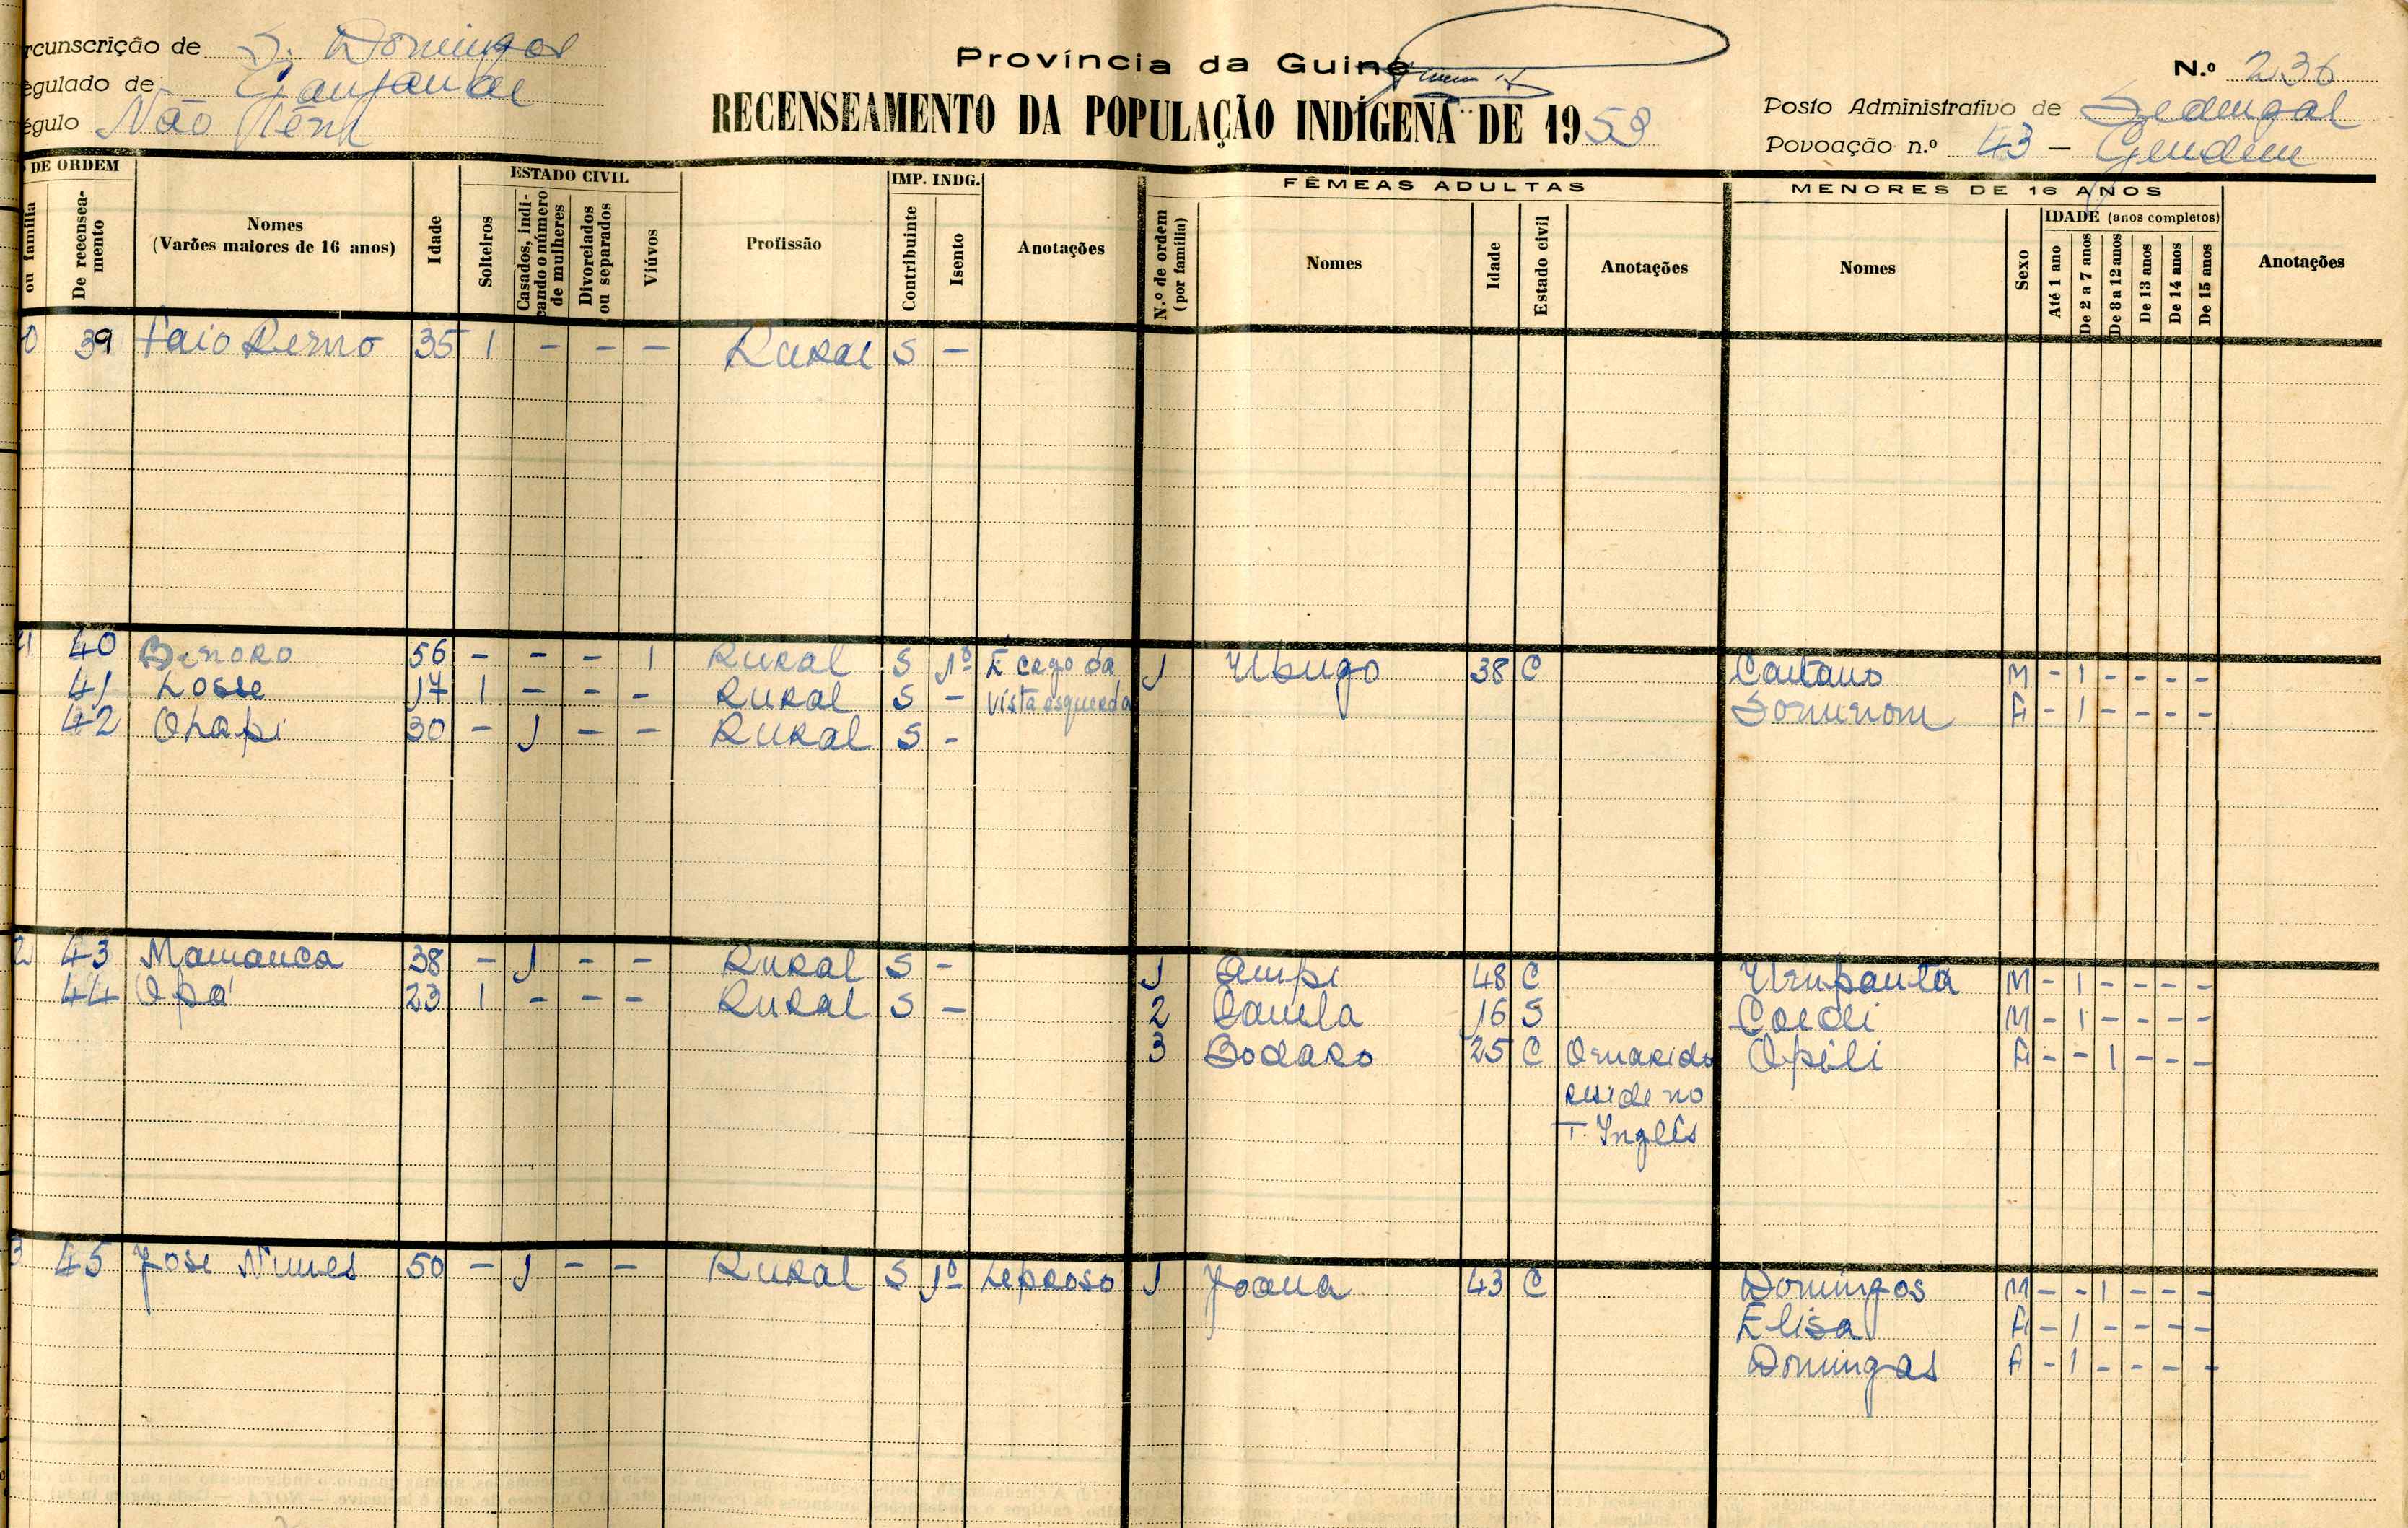 rcunscrição de S. Domingos
egulado de
égulo Não Tem
Província da Guiné
RECENSEAMENTO DA POPULAÇÃO INDÍGENA DE 1958
N.º 236
Posto Administrativo de Sedengal
Povoação n.º 43 - Gendem
DE ORDEM
ou família
De recensea-mento
Nomes
(Varões maiores de 16 anos)
Idade
ESTADO CIVIL
Solteiros
Casados, indi-cando o número de mulheres
Divorciados ou separados
Viúvos
Profissão
IMP. INDG.
Contribuinte
Isento
Anotações
FÊMEAS ADULTAS
N.º de ordem (por família)
Nomes
Idade
Estado civil
Anotações
MENORES DE 16 ANOS
Nomes
Sexo
IDADE (anos completos)
Até 1 ano
De 2 a 7 anos
De 8 a 12 anos
De 13 anos
De 14 anos
De 15 anos
Anotações
0 39 Faio Rerno 35 1 - - - Rural S -
41 40 Binoro 56 - - - 1 Rural S 1º É cego da 1 Ubugo 38 C Caetano M - 1 - - - -
41 Losse 17 1 - - - Rural S - vista esquerda F - 1 - - - -
42 Ohapi 30 - 1 - - Rural S -
2 43 Mamanca 38 - 1 - - Rural S - 1 Ampi 48 C Urupanta M - 1 - - - -
44 Opa 23 1 - - - Rural S - 2 Canela 16 S M - 1 - - - -
3 Bodaro 25 C O marido Opili F - - 1 - - -
reside no
T. Inglês
3 45 José Nunes 50 - 1 - - Rural S 1º Leproso 1 Joana 43 C Domingos M - - 1 - - -
Elisa F - 1 - - - -
Domingas F - 1 - - - -